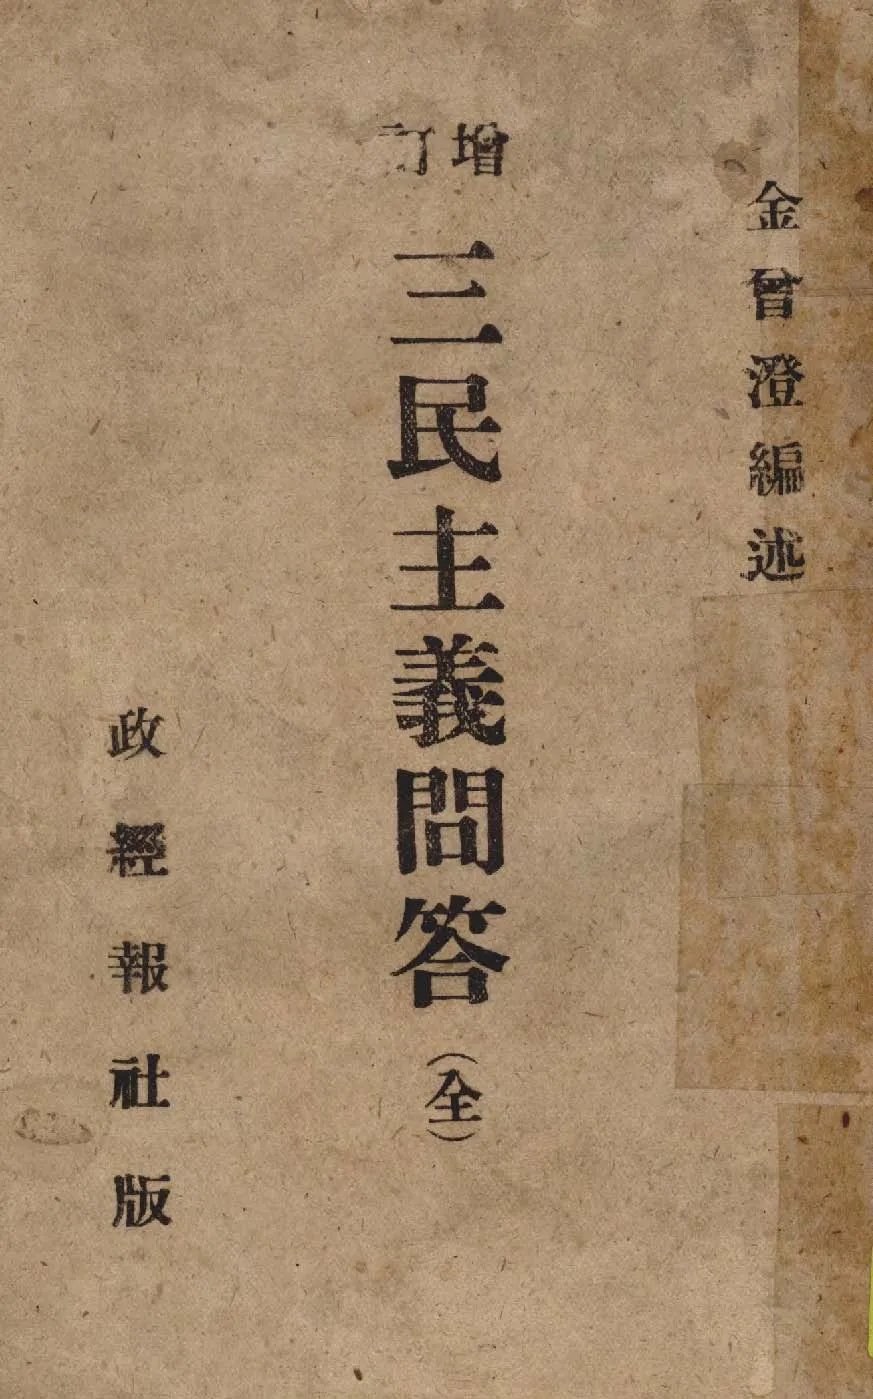 金曾澄編述
增訂
三民主義問答
(全)
政經報社版